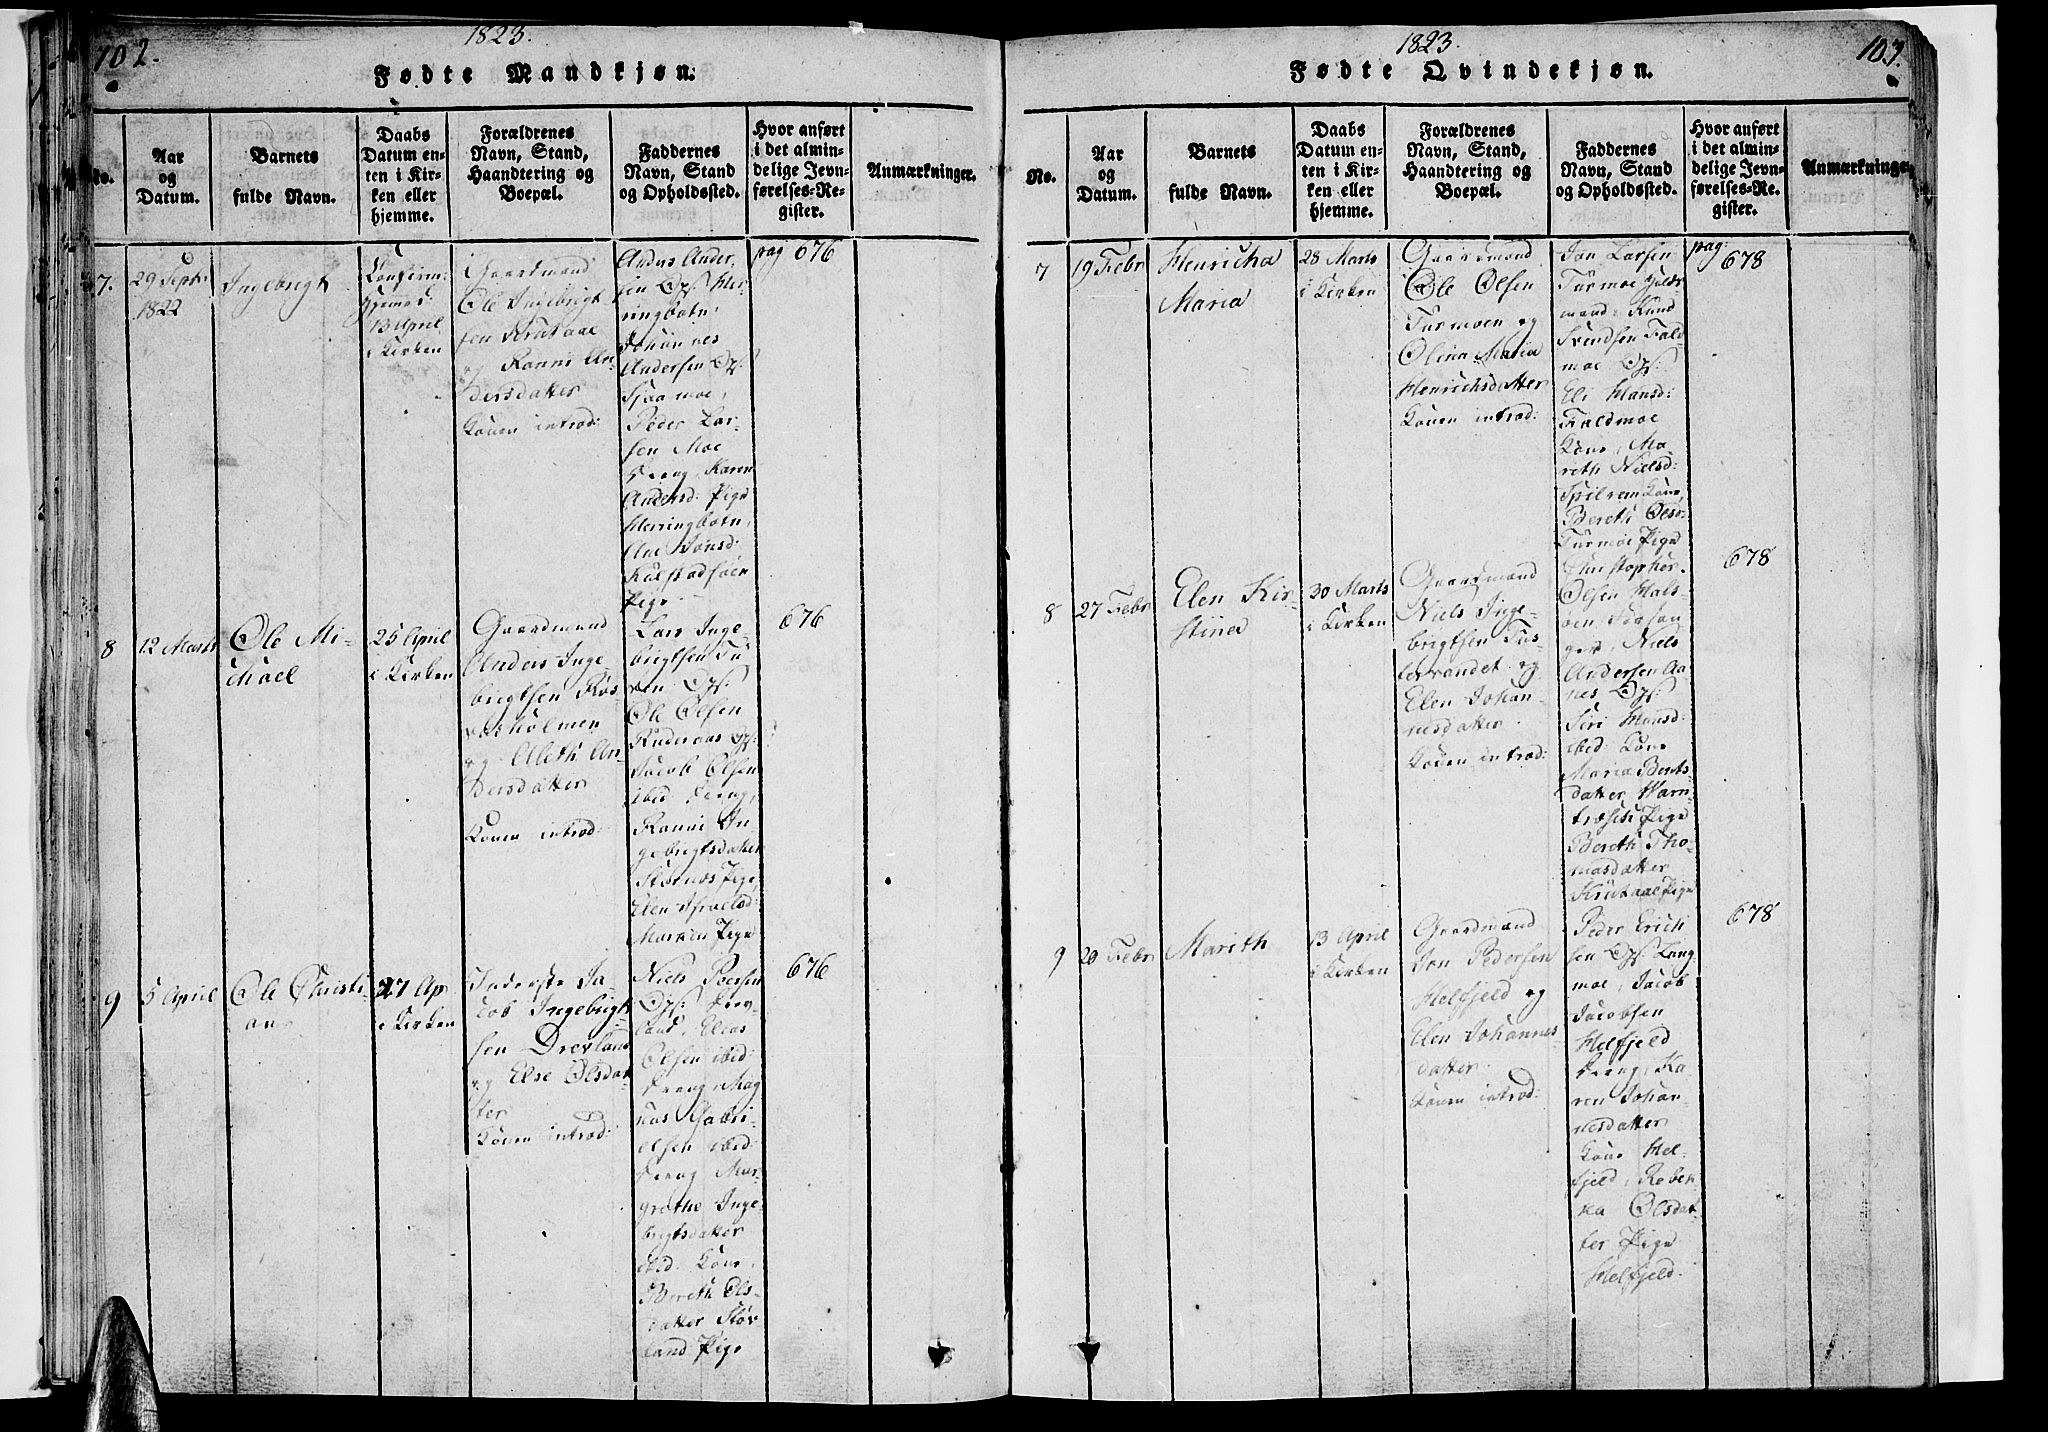 102.
1823.
Fødte Mandkjøn.
No.
Aar
og
Datum.
Barnets
fulde Navn.
Daabs
Datum en-
ten i Kir-
ken eller
hjemme.
Forældrenes
Navn, Stand,
Haandtering og
Boepæl.
Faddernes
Navn, Stand
og Opholdssted.
Hvor anført
i det almin-
delige Jevn-
førelses-Re-
gister.
Anmærkninger.
7.
29 Septr:
1822
Ingebrigt
Confirm:
hjemed:
13 April
i Kirken
Gaardmand
Ole Ingebrigt
sen Krutaae
og Ranni An
dersdatter
Konen introd:
Anders Ander
sen Gf: Her
ringbotn,
Johannes
Andersen Gf:
Sjaamoe,
Peder Lar-
sen Moe
Dreng, Karen
Andersd: Pige
Herringbotn,
Ane Jonsd:
Kulstadsøen
Pige
pag 676
8
12 Marts
Ole Mi-
chael
25 April
i Kirken
Gaardmand
Anders Inge-
brigtsen Røs
vasholmen
og Aleth An
dersdatter
Konen introd:
Lars Inge-
brigtsen Tu
ven Gf:
Ole Olsen
Ruderaas Gf:
Jacob Olsen
ibid: Dreng,
Ranni In
gebrigtsdatter
Stornæs Pige,
Elen Israelsd:
Marken Pige
676
9
5 April
Ole Christi-
an
27 Ap
i Kirken
Inderste Ja-
cob Ingebrigt
sen Drevland
og Else Olsdat
ter
Konen introd:
Niels Povelsen
Gf: Drev-
land, Elias
Olsen ibid:
Dreng, Mag
nus Gabri-
elsen ibid:
Dreng Mar-
grethe Inge
brigtsdatter
ibid: Kone,
Bereth Ols-
datter Stov
land Pige
676
1823.
103.
Fødte Qvindekjøn.
No.
Aar
og
Datum.
Barnets
fulde Navn.
Daabs
Datum en-
ten i Kir-
ken eller
hjemme.
Forældrenes
Navn, Stand,
Haandtering og
Boepæl.
Faddernes
Navn, Stand
og Opholdssted.
Hvor anført
i det almin-
delige Jevn-
førelses-Re-
gister.
Anmærkninger
7
19 Febr
Henricha
Maria
28 Marts
i Kirken
Gaardmand
Ole Olsen
Turmoen og
Olina Maria
Henrichsdatter
Konen introd:
Jon Larsen
Turmoe Gaard
mand: Knud
Svendsen Fald
moe Gf:
Eli Hansd:
Faldmoe
Kone, Ma
reth Nielsd:
Spilrem Kone,
Bereth Olsd:
Turmoe Pige
pag: 678
8
27 Febr
Elen Kir-
stina
30 Marts
i Kirken
Gaardmand
Niels Inge-
brigtsen Tus-
tervandet og
Elen Johan-
nesdatter
Konen introd:
Christopher
Olsen Hals-
ven
Niels
Andersen Aa
næs Gf:
Siri Hansd:
ibid: Kone
Maria Bents
datter Varn-
træsk Pige
Bereth Tho-
masdatter
Krutaae Pige
678
9
20 Febr
Marith
13 April
i Kirken
Gaardmand
Jon Pedersen
Helfjeld og
Elen Johannes-
datter
Konen introd:
Peder Erich
sen Gf: Lang
moe, Jacob
Jacobsen
Helfjeld
Dreng, Ka
ren Johan-
nesdatter
Kone Hel-
fjeld, Rebek-
ka Olsdat-
ter Pige
Helfjeld.
678